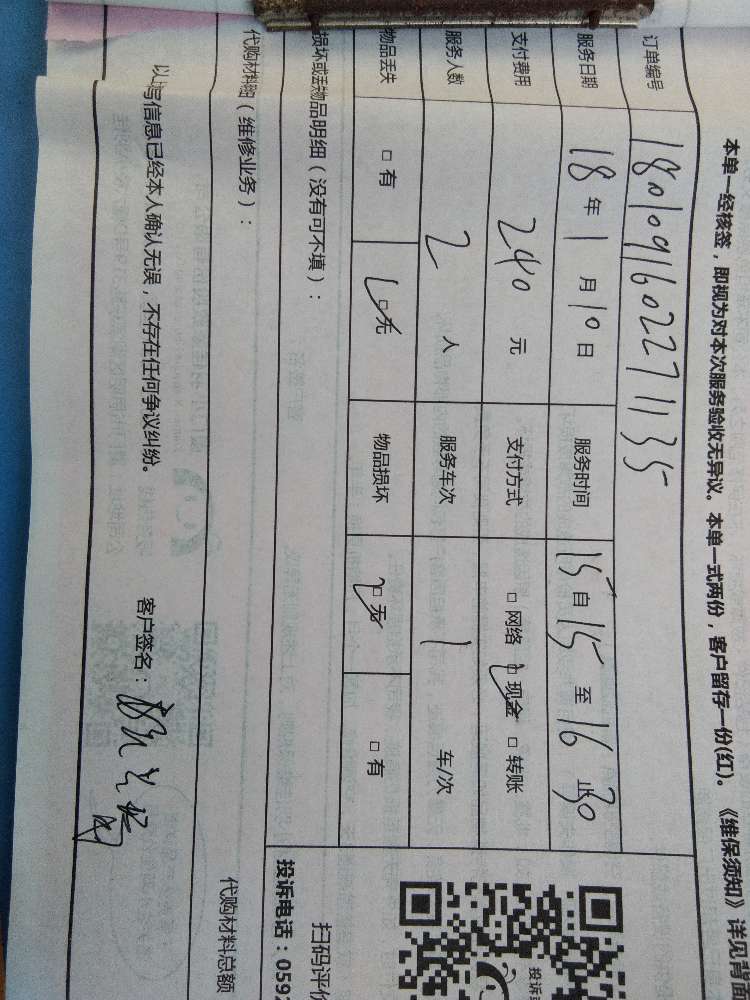 本单一经核签，即视为对本次服务验收无异议。本单一式两份，客户留存一份(红)。《维保须知》详见背面
订单编号 1801091602271135
服务日期 18年1月10日 服务时间 15自15至16止30
支付费用 240元 支付方式 □网络 □现金 □转账
服务人数 2人 服务车次 1车/次
物品丢失 □有 □无 物品损坏 □无 □有
损坏或丢物品明细（没有可不填）：
扫码评价
投诉电话：0592
代购材料 （维修业务）：
代购材料总额
以 写信息已经本人确认无误，不存在任何争议纠纷。 客户签名：